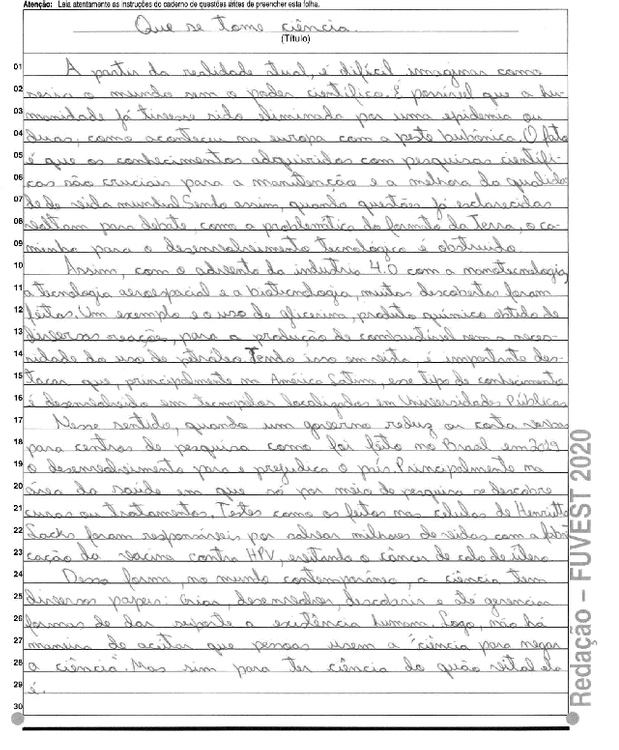 Atenção: Leia atentamente as instruções do caderno de questões antes de preencher esta folha.
Que se tome ciência.
(Título)
01 A partir da realidade atual, é difícil imaginar como
02 seria o mundo sem o poder científico. É possível que a hu-
03 manidade já tivesse sido eliminada por uma epidemia ou
04 duas, como aconteceu na europa com a peste bubônica. O fato
05 é que os conhecimentos adquiridos com pesquisas científi-
06 cas são cruciais para a manutenção e a melhora da qualida
07 de de vida mundial. Sendo assim, quando questões já esclarecidas
08 voltam para debate, como a problemática do formato da Terra, o ca-
09 minho para o desenvolvimento tecnológico é obstruído
10 Assim, com o advento da indústria 4.0 com a nanotecnologia,
11 a tecnologia aeroespacial e a biotecnologia, muitas descobertas foram
12 feitas. Um exemplo e o uso de glicerina, produto químico obtido de
13 diversas reações, para a produção de combustível sem a neces-
14 sidade do uso de petróleo. Tendo isso em vista, é importante des-
15 tacar que, principalmente na América Latina, esse tipo de conhecimento
16 é desenvolvido em localizados em Universidades Públicas
17 Nesse sentido, quando um governo reduz as verbas
18 para centros de pesquisa como foi feito no Brasil em 2019
19 o desenvolvimento para e prejudica o país. Principalmente na
20 área da saúde em que só por meio de pesquisa se descobre
21 curas ou tratamentos. Testes como os feitos nas células de Henrietta
22 Lacks foram responsáveis por salvar milhares de vidas com a fabri
23 cação da vacina contra HPV, evitando o câncer de colo de útero
24 Dessa forma, no mundo contemporâneo, a ciência tem
25 diversos papeis: Criar, desenvolver, descobrir e até gerenciar
26 formas de dar suporte a existência humana. Logo, não há
27 maneira de aceitar que pessoas usem a "ciência para negar
28 a ciência". Mas sim para ter ciência do quão vital ela
29 é.
30
Redação – FUVEST 2020